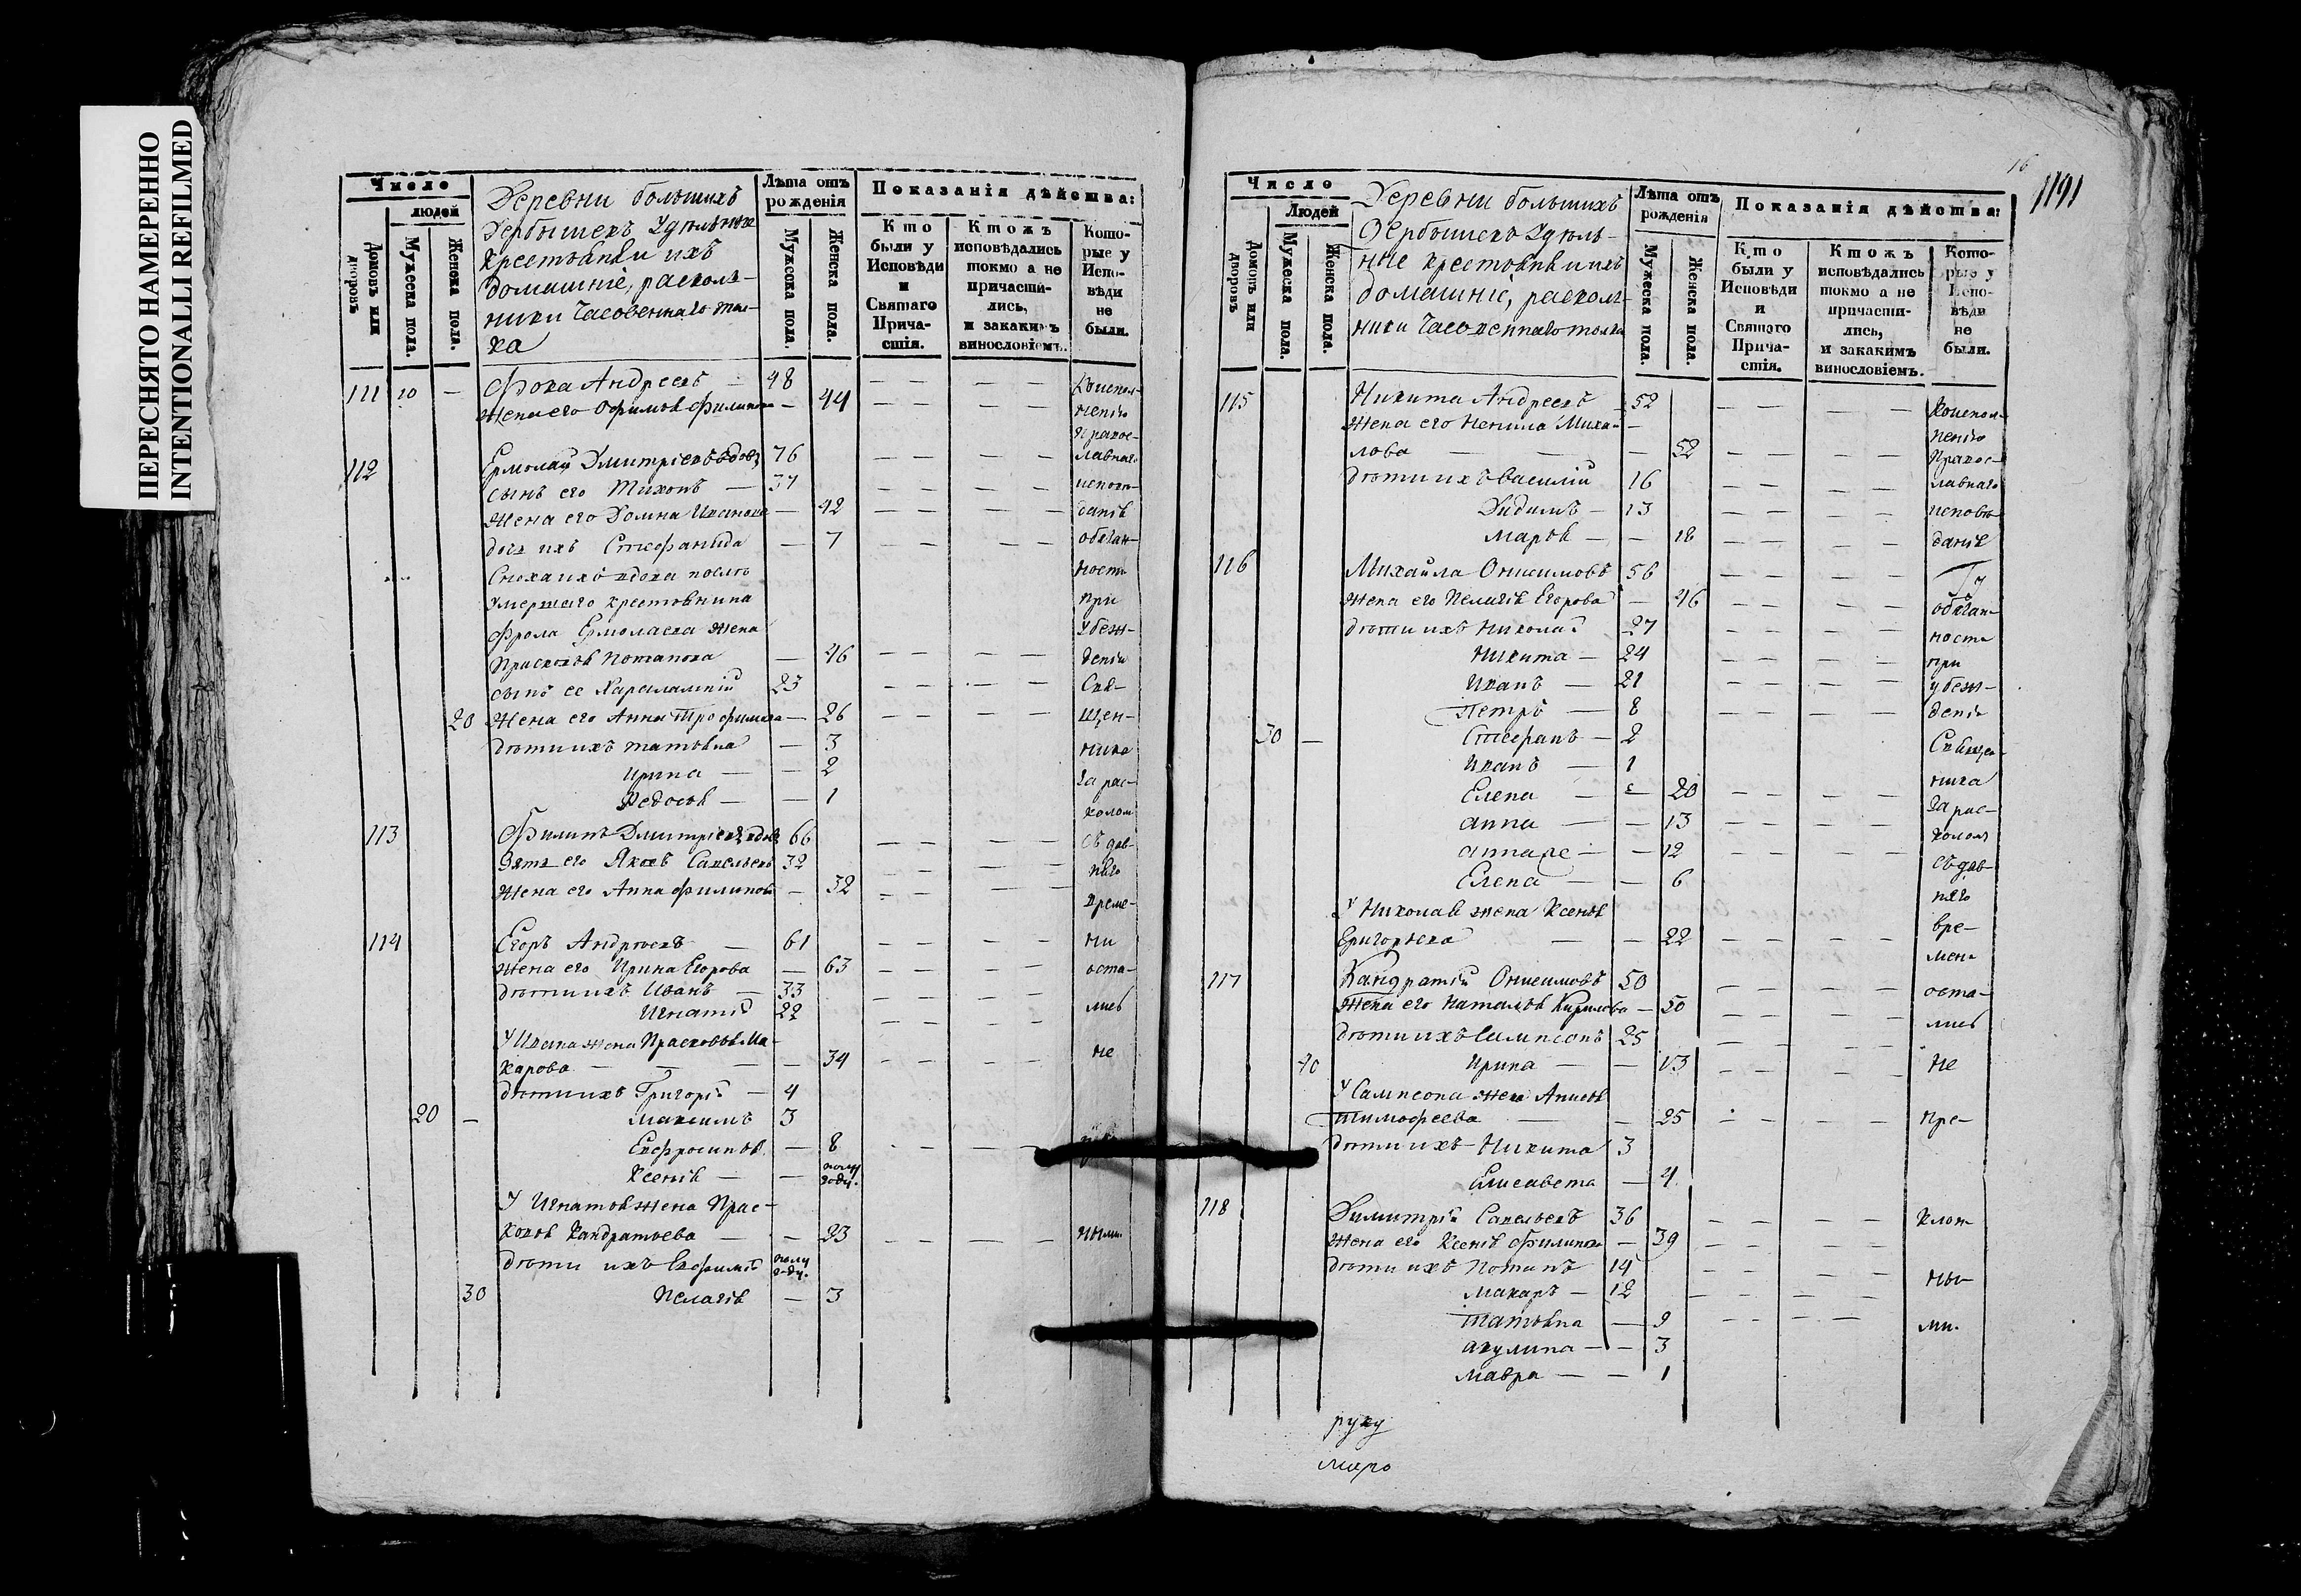 ПЕРЕСНЯТО НАМЕРЕННО
INTENTIONALLI REFILMED
Число
людей
Домовъ или дворовъ
Мужеска пола.
Женска пола.
Деревни большихъ
Дербышекъ Удѣльные
Крестьяне и ихъ
домашніе, расколь-
ники Часовеннаго тол-
ка
Лѣта отъ рожденія
Мужеска пола.
Женска пола.
Показанія дѣйства:
Кто были у Исповѣди и Святаго Прича-стія.
Ктожъ исповѣдались токмо а не причасти-лись, и закакимъ винословіемъ.
Кото-рые у Испо-вѣди не были.
111 10 — Фока Андреевъ — 48
жена его Офимья Филипова — 44
112 Ермолай Дмитріевъ вдовъ 76
сынъ его Тихонъ — 37
жена его Домна Иванова — 42
дочь ихъ Стефанида — 7
Сноха ихъ вдова послѣ
умершаго крестьянина
Фрола Ермолаева жена
Прасковья Потапова — 46
сынъ ее Харлампій 23
20 жена его Анна Трофимова — 26
дѣти ихъ Татьяна — 3
Ирина — — 2
Федосья — — 1
113 Филипъ Дмитріевъ вдовъ 66
Зять его Яковъ Савельевъ 32
жена его Анна Филипова — 32
114 Егоръ Андреевъ — 61
жена его Ирина Егорова — 63
дѣти ихъ Иванъ — 33
Игнатій 22
У Ивана жена Прасковья Ма-
карова — — — — 34
дѣти ихъ Григорій — 4
20 — Максимъ 3
Евфросинья — 8
Ксенія — — полу году.
У Игнатья жена Прас-
ковья Кандратьева — — 23
дѣти ихъ Евфимій полу году.
30 Пелагія — 3
Коиспол-
ненію
Правос-
лавнаго
исповѣ-
данія
обязан-
ности
при
убеж-
деніи
Свя-
щен-
ника
за рас-
колом
съ дав-
няго
време-
ни
оста-
лись
не
ными
16
1191
Число
Людей
Домовъ или дворовъ
Мужеска пола.
Женска пола.
Деревни большихъ
Дербышекъ Удѣль-
ные крестьяне и ихъ
домашніе, расколь-
ники Часовеннаго толка
Лѣта отъ рожденія
Мужеска пола.
Женска пола.
Показанія дѣйства:
Кто были у Исповѣди и Святаго Прича-стія.
Ктожъ исповѣдались токмо а не причасти-лись, и закакимъ винословіемъ.
Кото-рые у Испо-вѣди не были.
115 Никита Андреевъ 52
жена его Ненила Михай-
лова — — — 52
дѣти ихъ Василій 16
Дидимъ — 13
Марья — — 18
116 Михайла Онисимовъ 56
жена его Пелагія Егорова — 46
дѣти ихъ Николай 27
Никита — 24
Иванъ — 21
Петръ — 8
30 — Стефанъ — 2
Иванъ — 1
Елена — — 20
Анна — — 13
— 12
Елена — — 6
У Николая жена Ксенія
Григорьева — — 22
117 Кандратій Онисимовъ 50
жена его Наталья Кирилова — 50
дѣти ихъ Сампсонъ 25
40 Ирина — — 13
У Сампсона жена Анисья
Тимофеева — — 25
дѣти ихъ Никита 3
Елисавета — 4
118 Димитрій Савельевъ 36
жена его Ксенія Филипова — 39
дѣти ихъ Потапъ 14
Макаръ — 12
Татьяна — 9
Акулина — — 3
Мавра — — 1
Коиспол-
ненію
Правос-
лавнаго
исповѣ-
данія
обязан-
ности
при
убеж-
деніи
Священ-
ника
за рас-
коломъ
съ дав-
няго
вре-
мени
оста-
лись
не
пре-
клон-
ны-
ми.
руку